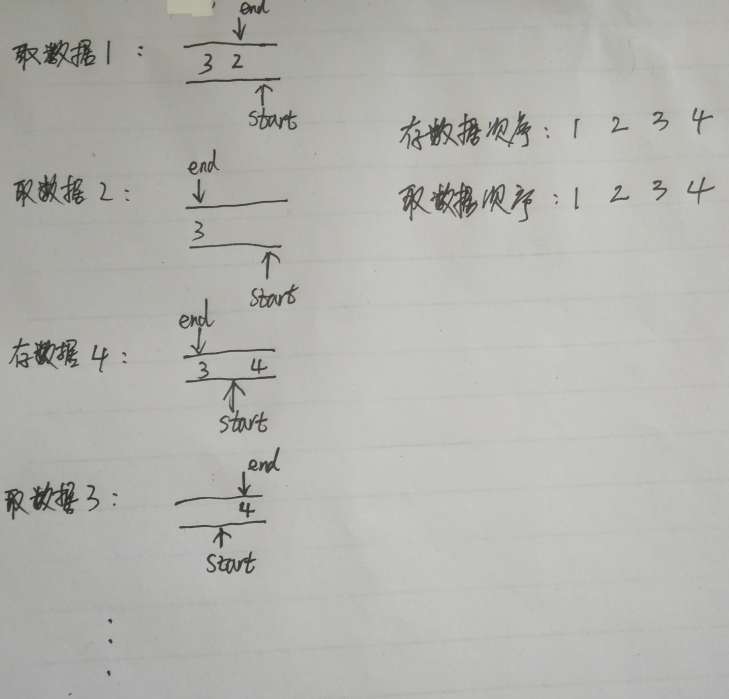 end
取数据1：
3 2
start
存数据次序：1 2 3 4
取数据次序：1 2 3 4
end
取数据2：
3
start
end
存数据4：
3 4
start
end
取数据3：
4
start